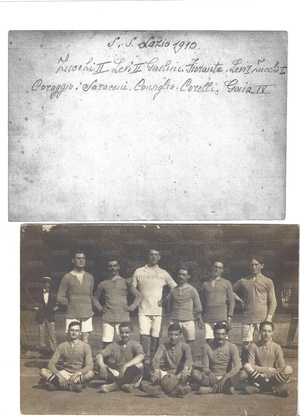 S. S. Lazio 1910.
Zucchi II Levi II Gaslini. Fiorante. Levi I Zucchi I
Coraggio. Saraceni. Consiglio. Corelli. Gaia IV